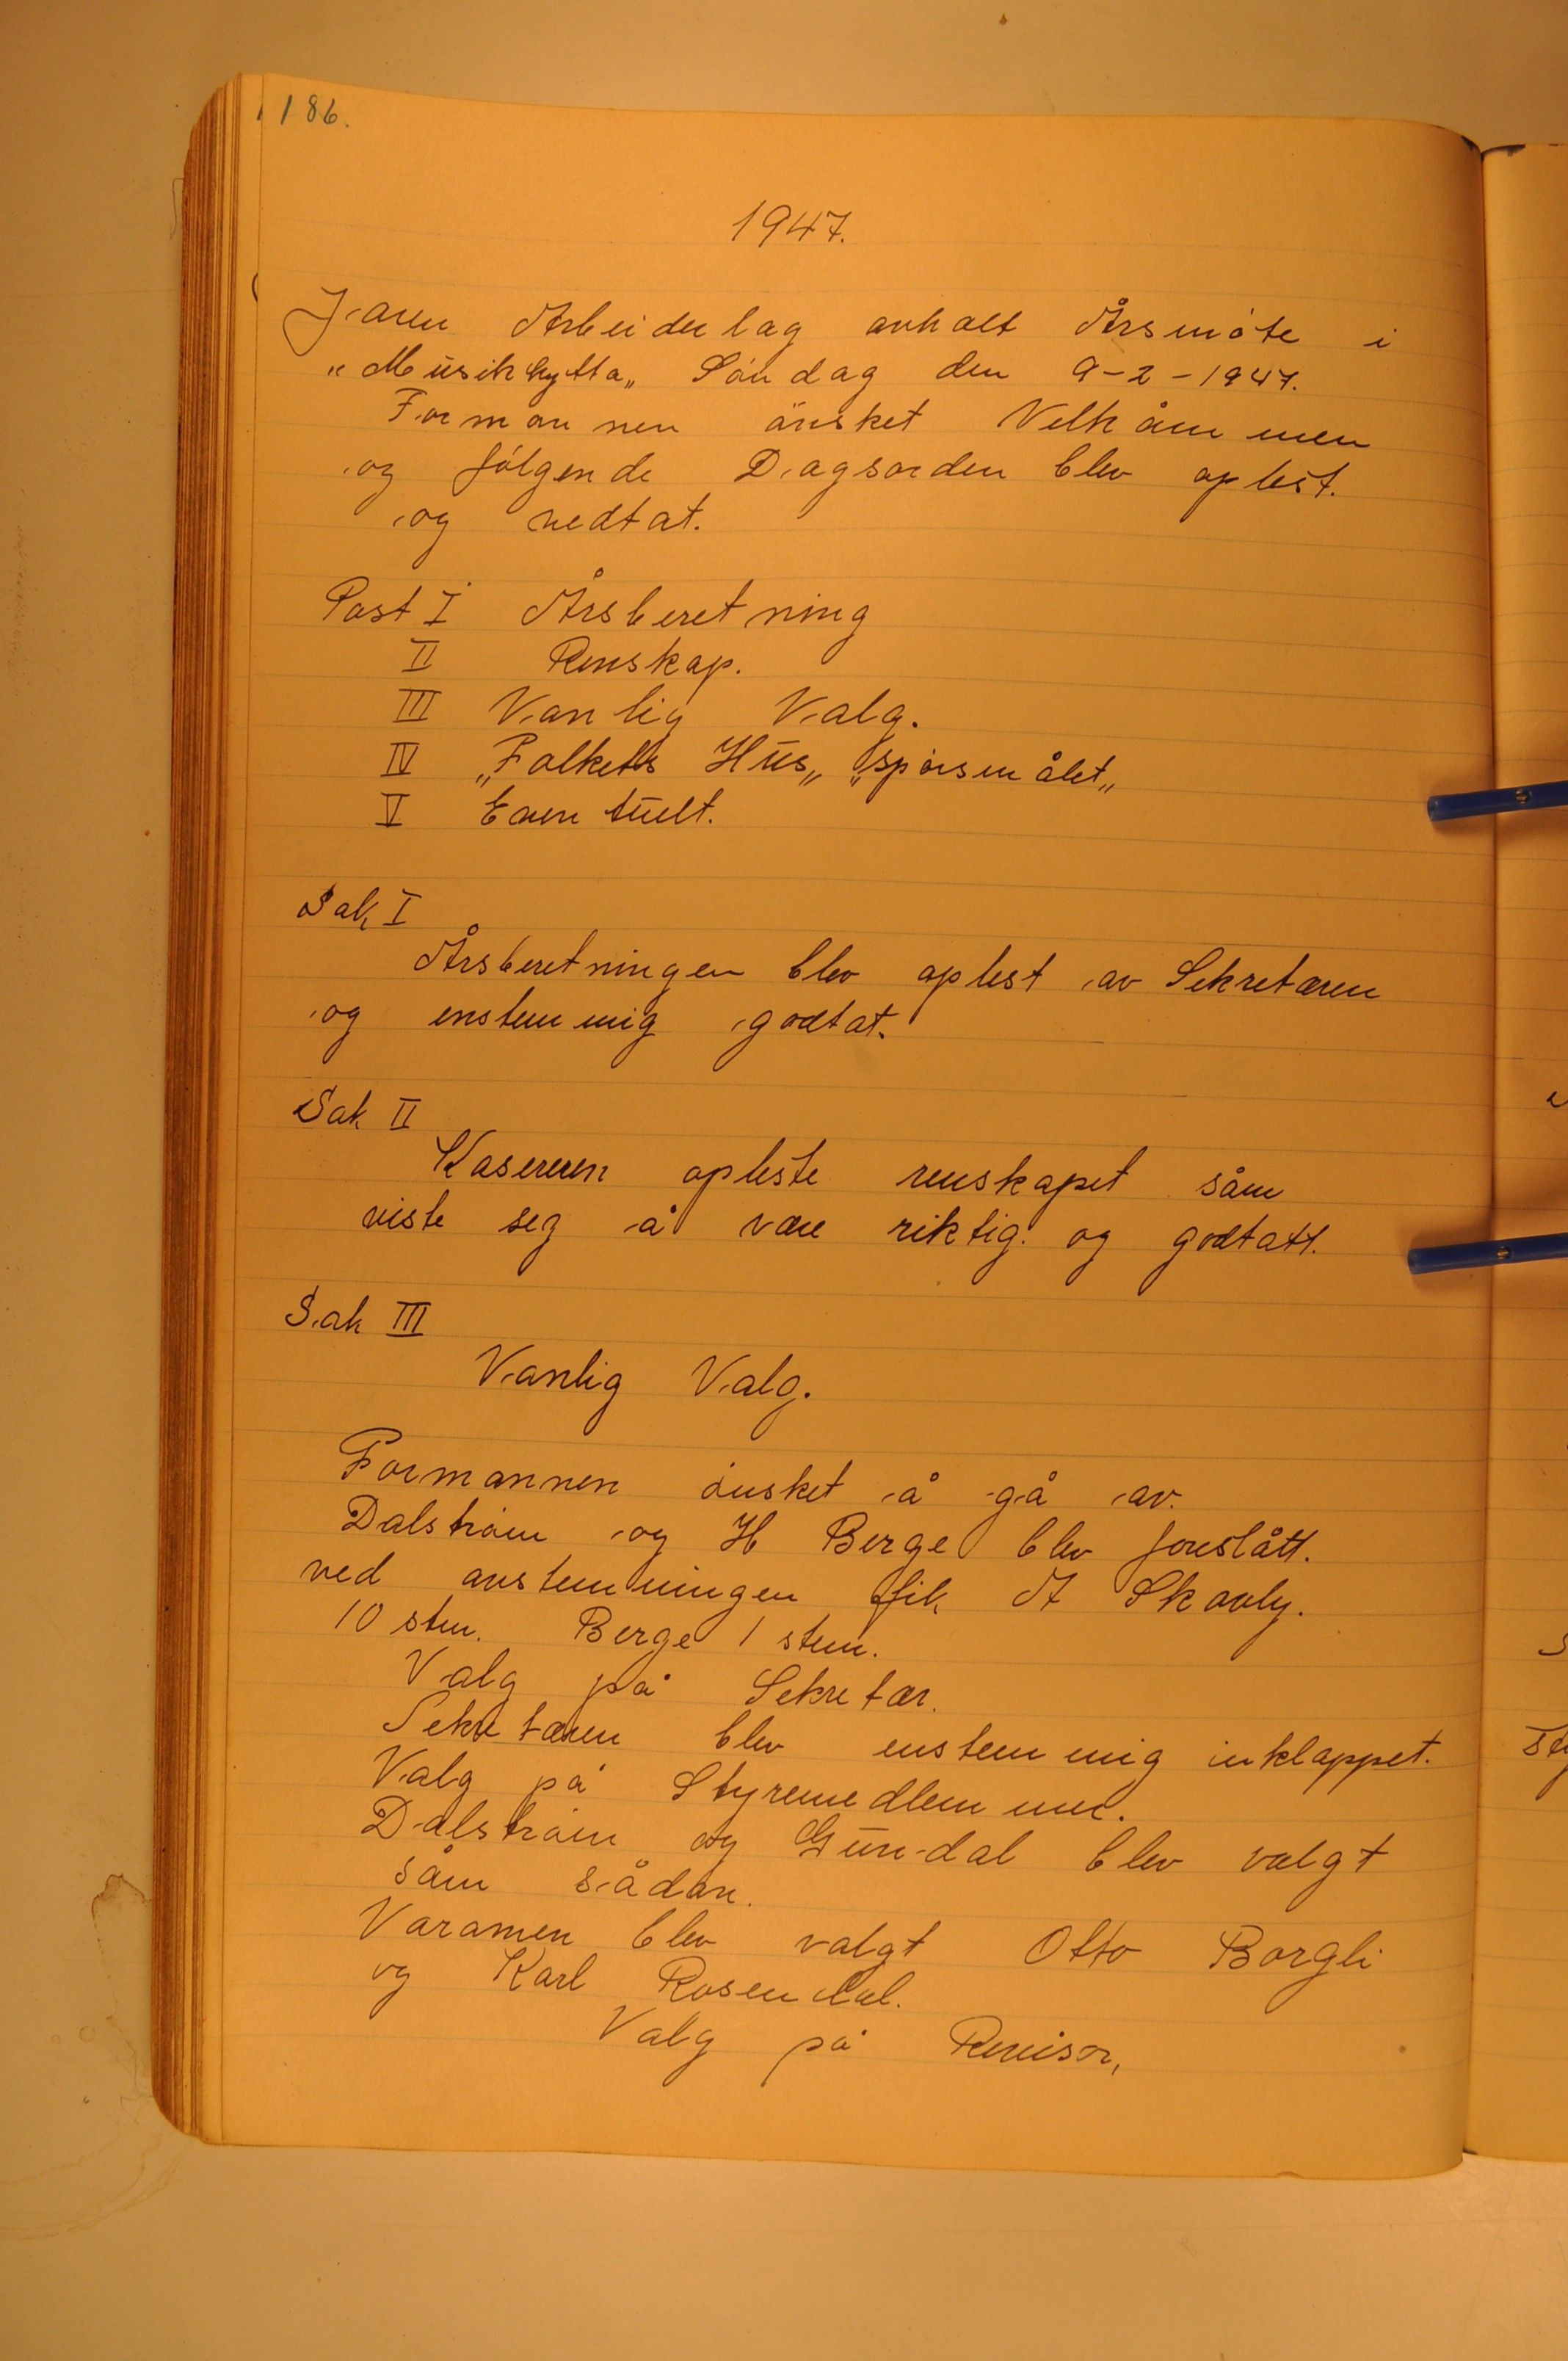 186.
1947.
Jaren Arbeiderlag avholt Årsmöte i
"Musikhytta" Söndag den 9-2-1947.
Formannen önsket Velkåmmen
og fölgende Dagsorden blev oplest.
og vedtat.
Post I Årsberetning
II Renskap.
III Vanlig Valg.
IV "Folkets Hus" "spörsmålet"
V Eventuelt.
Sak I
Årsberetningen blev oplest av Sekretæren
og enstemmig godtat.
Sak II
Kasereren opleste renskapet såm
viste seg å være riktig. og godtatt.
Sak III
Vanlig Valg.
Formannen önsket å gå av.
Dalström og H Berge blev foreslått.
ved avstemningen fik A Skavly.
10 stem. Berge 1 stem.
Valg på Sekretær.
Sekretæren blev enstemmig inklappet.
Valg på Styremedlemmer.
Dalström og Gundal blev valgt
såm sådan.
Varamen blev valgt Otto Borgli
og Karl Rosendal.
Valg på Revisor,